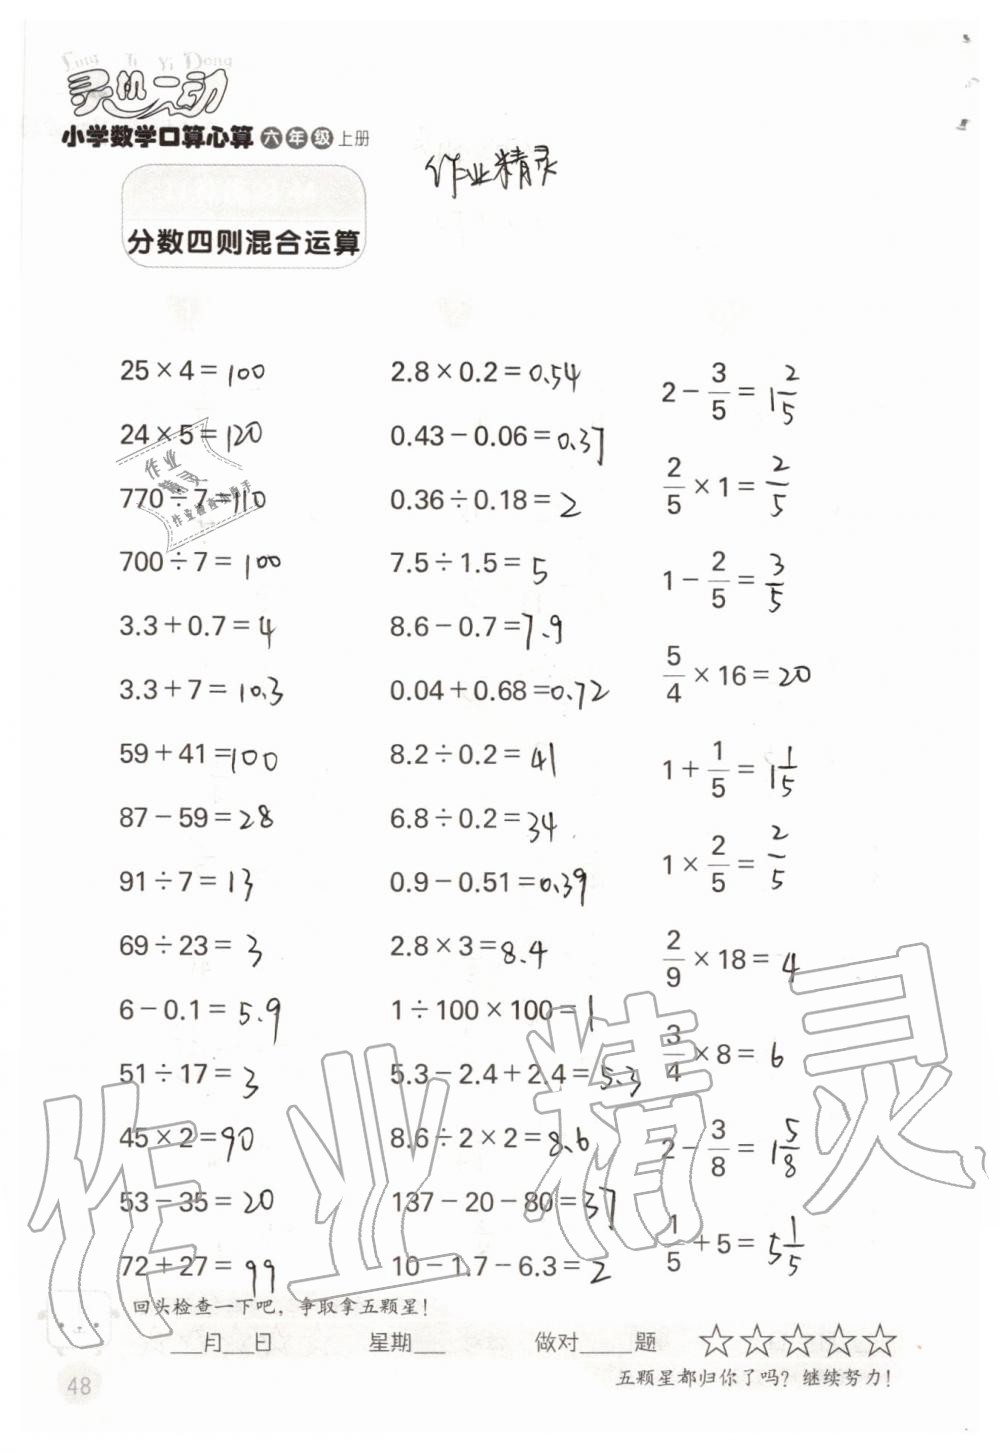 Ling Ji Yi Dong
灵机一动
小学数学口算心算 六年级 上册
作业精灵
分数四则混合运算
25×4=100
24×5=120
770÷7=110
700÷7=100
3.3+0.7=4
3.3+7=10.3
59+41=100
87-59=28
91÷7=13
69÷23=3
6-0.1=5.9
51÷17=3
45×2=90
53-35=20
72+27=99
2.8×0.2=0.54
0.43-0.06=0.37
0.36÷0.18=2
7.5÷1.5=5
8.6-0.7=7.9
0.04+0.68=0.72
8.2÷0.2=41
6.8÷0.2=34
0.9-0.51=0.39
2.8×3=8.4
1÷100×100=1
5.3-2.4+2.4=5.3
8.6÷2×2=8.6
137-20-80=37
10-1.7-6.3=2
2-3/5=1 2/5
2/5×1=2/5
1-2/5=3/5
5/4×16=20
1+1/5=1 1/5
1×2/5=2/5
2/9×18=4
3/4×8=6
2-3/8=1 5/8
1/5+5=5 1/5
作业
精灵
作业检查小助手
作业精灵
回头检查一下吧，争取拿五颗星！
___月___日 星期___ 做对_____题 ☆☆☆☆☆
五颗星都归你了吗？继续努力！
48